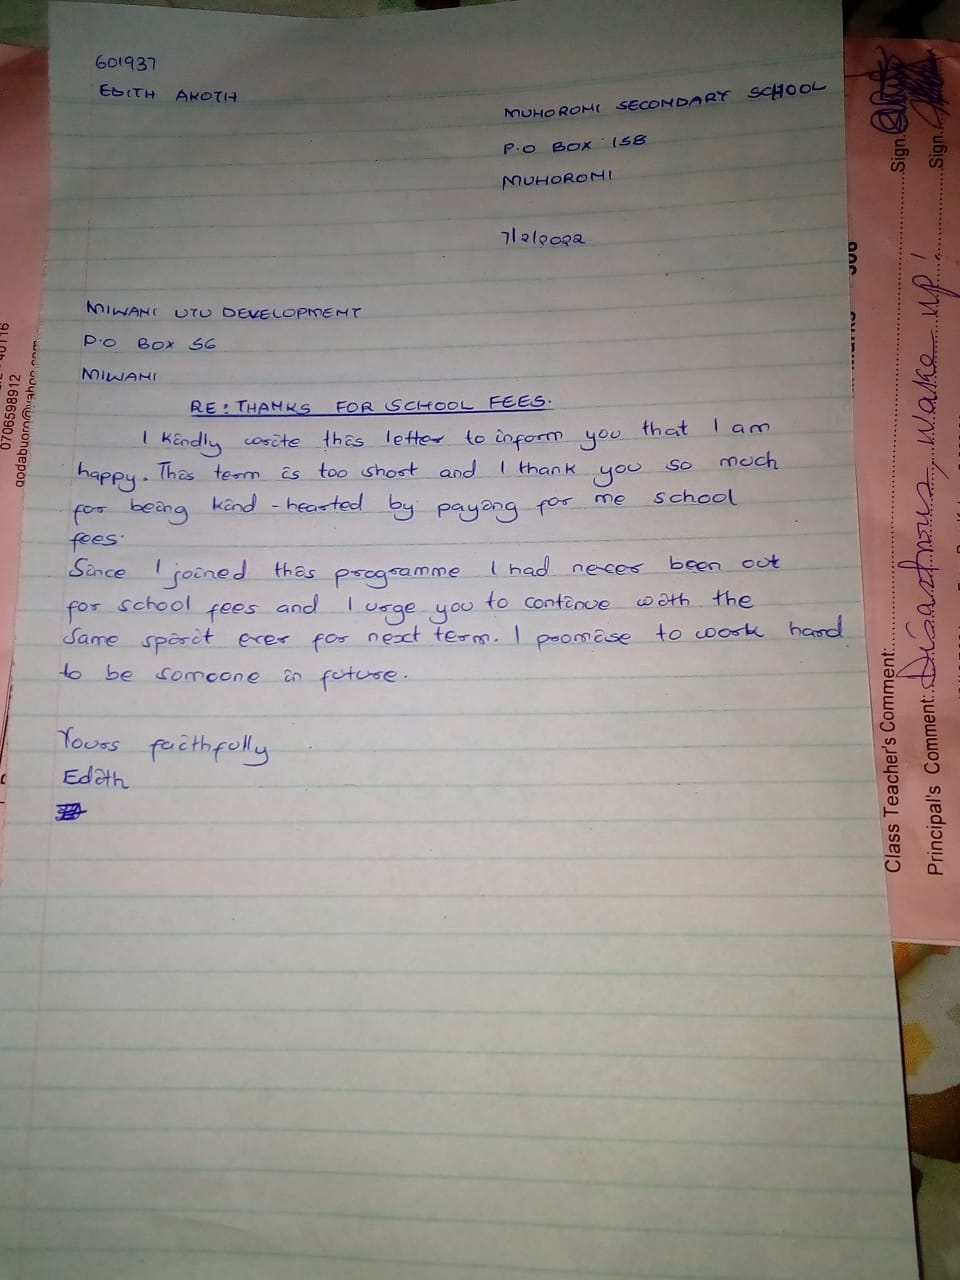 601937
EDITH AKOTH
MUHORONI SECONDARY SCHOOL
P.O BOX 158
MUHORONI
7/2/2022
MIWANI UTU DEVELOPMENT
P.O BOX 56
MIWANI
RE: THANKS FOR SCHOOL FEES.
I Kindly write this letter to inform you that I am
happy. This term is too short and I thank you so much
for being kind-hearted by paying for me school
fees.
Since I joined this programme I had never been out
for school fees and I urge you to continue with the
same spirit ever for next term. I promise to work hard
to be someone in future.
Yours faithfully
Edith
Class Teacher's Comment:
Sign.
Principal's Comment: Disastrous, wake up!
Sign.
0706598912